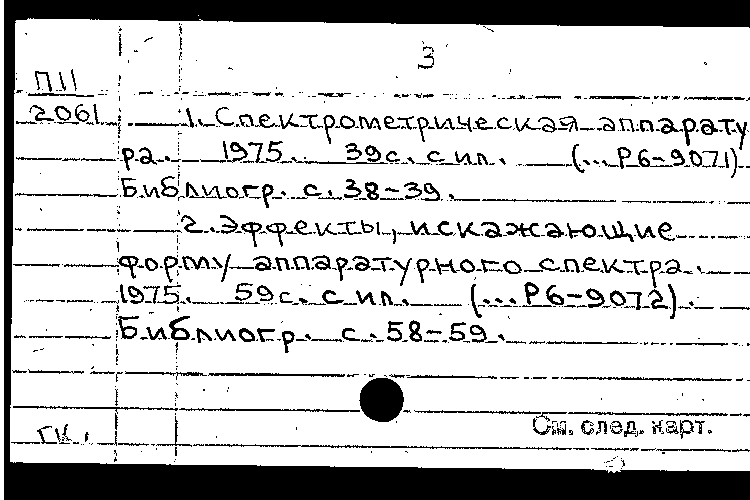 3
П11
2061
1. Спектрометрическая аппарату
ра. 1975. 39с. с ил. (...Р6-9071)
Библиогр. с. 38-39.
2. Эффекты, искажающие
форму аппаратурного спектра.
1975. 59с. с ил. (...Р6-9072).
Библиогр. с. 58-59.
гк.
См. след. карт.